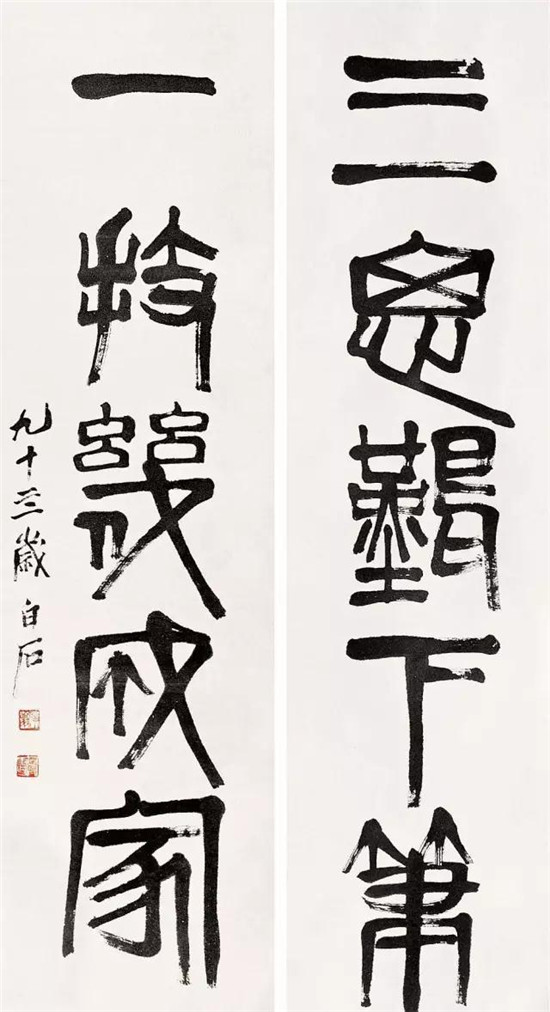 三思艱下筆
一技幾成家
九十三歲白石